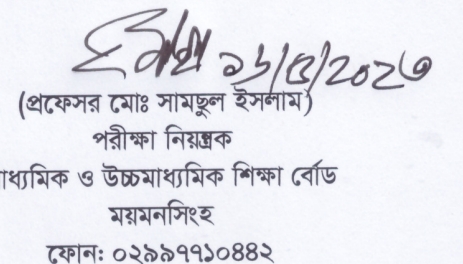 (প্রফেসর মোঃ সামছুল ইসলাম)
পরীক্ষা নিয়ন্ত্রক
াধ্যমিক ও উচ্চমাধ্যমিক শিক্ষা বোর্ড
ময়মনসিংহ
ফোন: ০২৯৯৭৭১০৪৪২